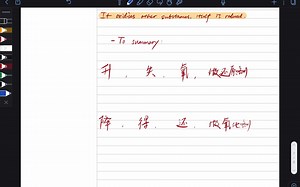 It oxidises other substances itself is reduced
- To summary:
升、失、氧、做还原剂
降、得、还、做氧化剂